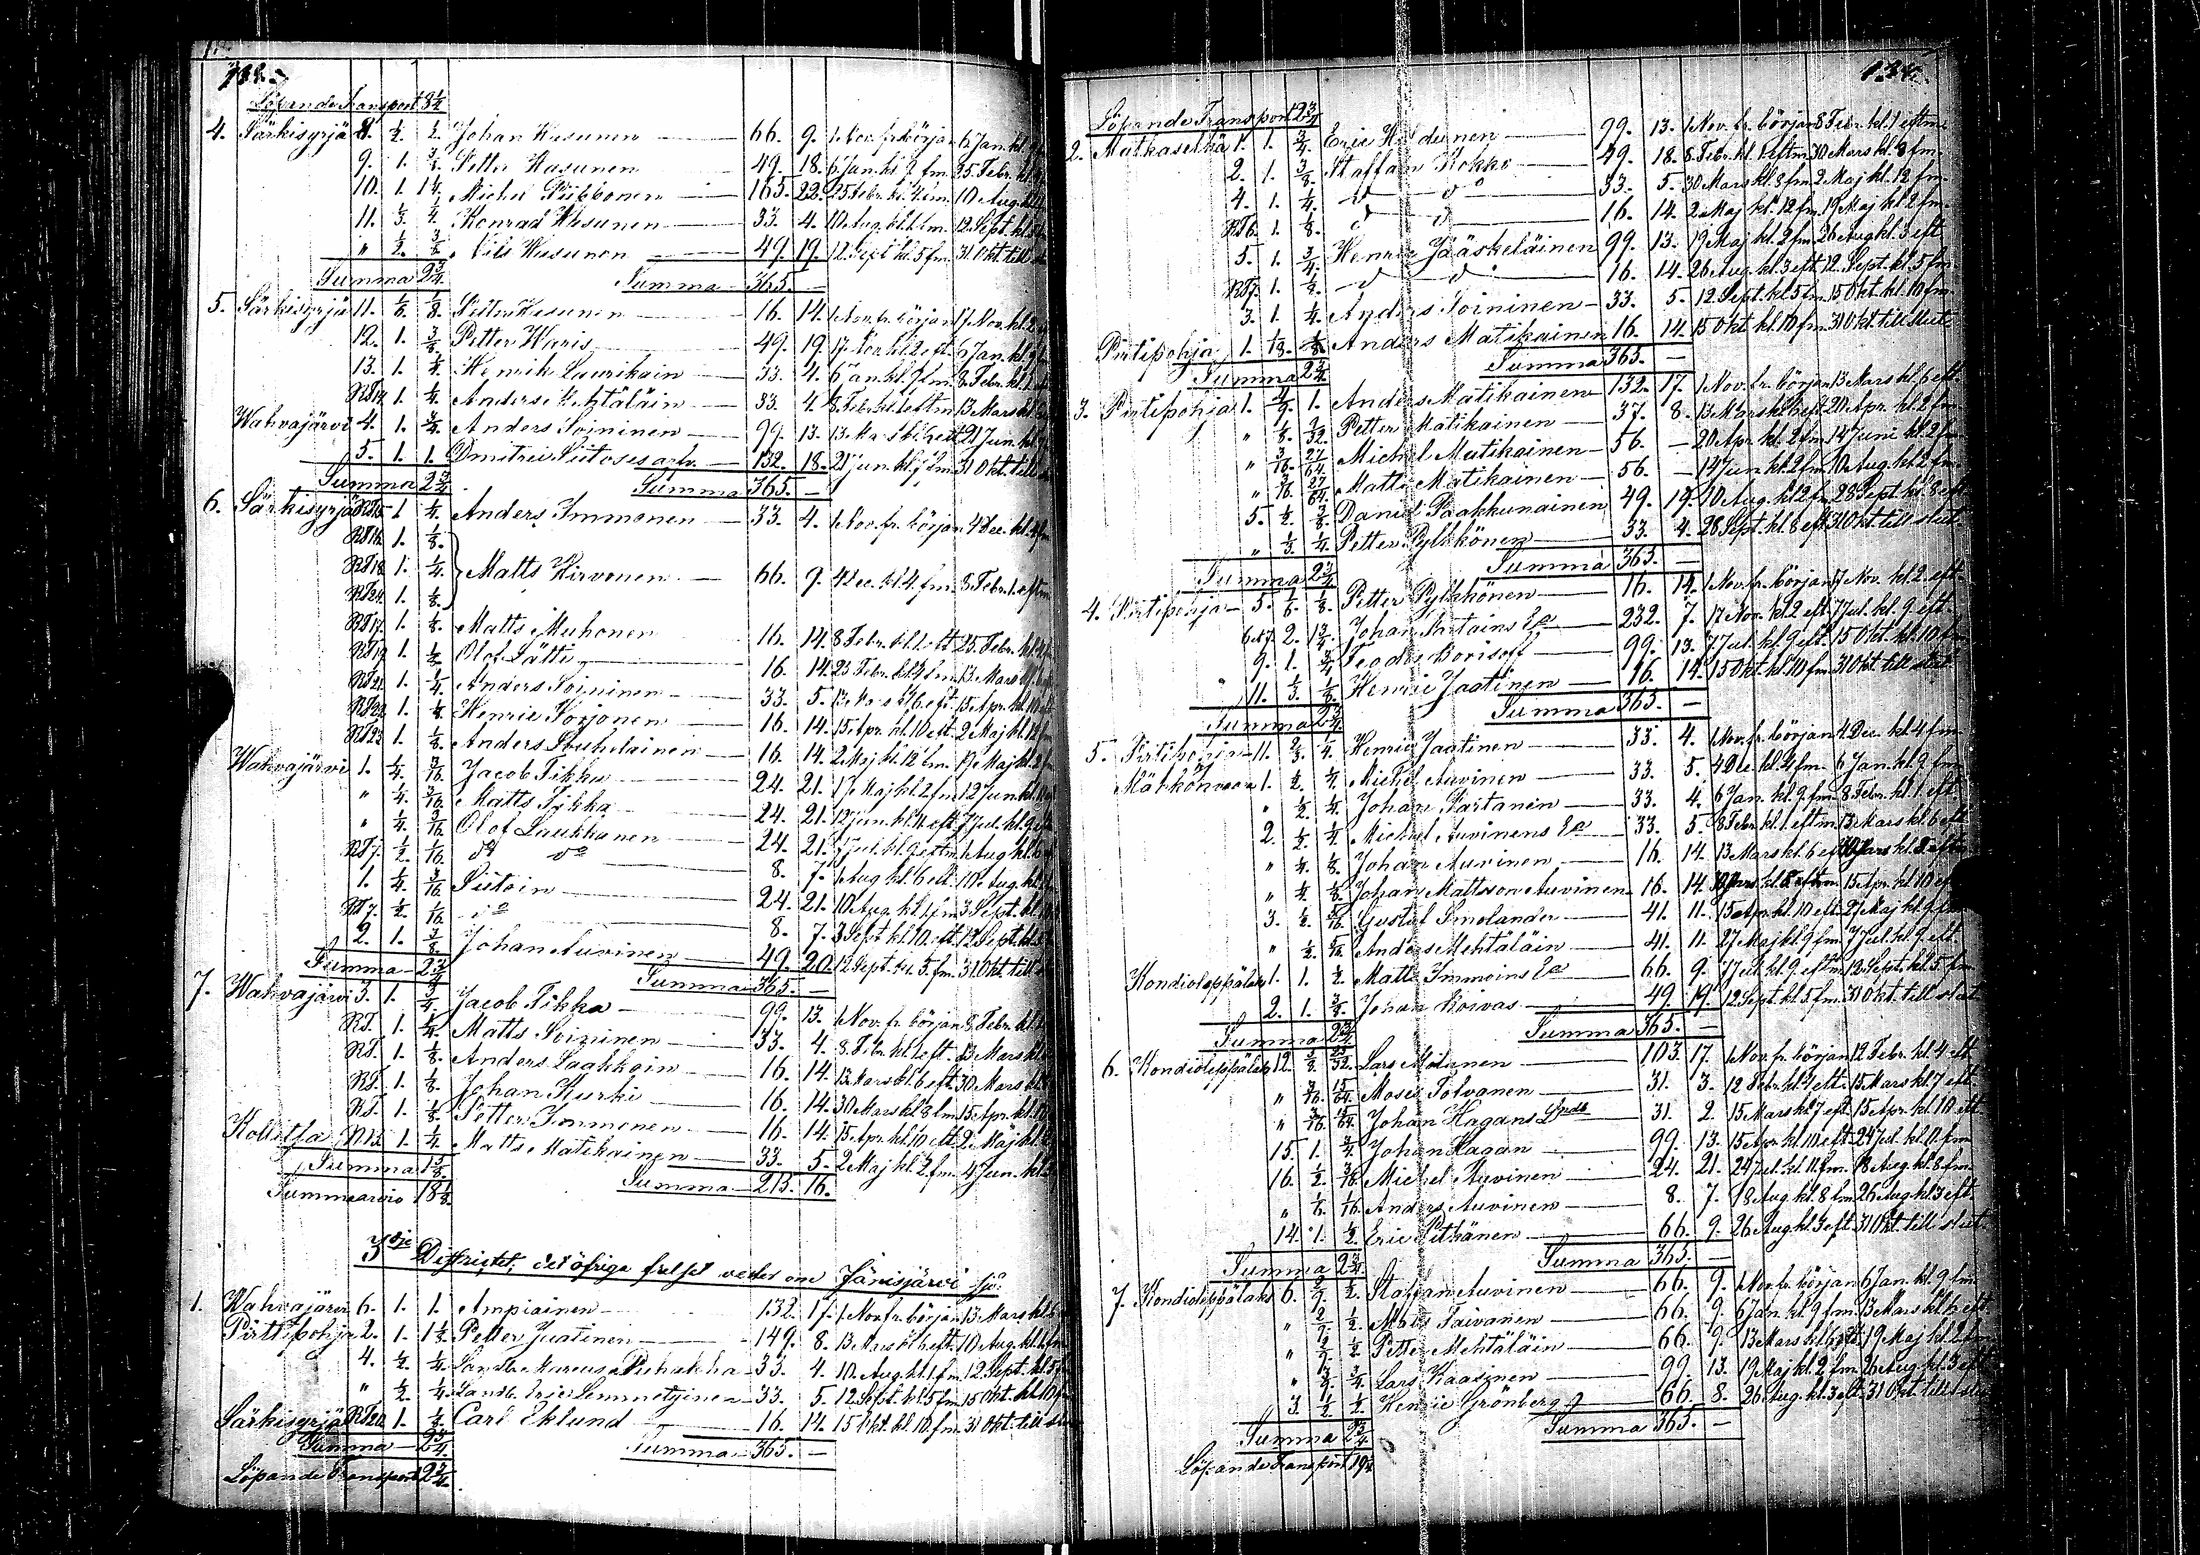 Löpande Transport
4. Särkisyrjä 8. ½. ½. Johan Hasunen 66. 9. 1 Nov. fr. början 6 Jan. kl.
9. 1. Petter Hasunen 49. 18. 6 Jan. kl. 9 fm. 25 Febr. kl.
10. 1. 1¼. Michel 165. 22. 25 Febr. kl. 4 fm. 10 Aug. kl.
11. ⅓. ¼. Konrad Hasunen 33. 4. 10 Aug. kl. 1 fm. 12 Sept. kl.
" ½. ⅜. Nils Hasunen 49. 19. 12 Sept. kl. 5 fm. 31 Okt. till
Summa 2¾. Summa 365. —
5. Särkisyrjä 11. ⅙. ⅛. Petter Hasunen 16. 14. 1 Nov. fr. början 17 Nov. kl.
12. 1. ⅜. Petter Haris 49. 19. 17 Nov. kl. 2 eft. 6 Jan. kl.
13. 1. ¼. Henrik Laurikain 33. 4. 6 Jan. kl. 9 fm. 8 Febr. kl.
1. ¼. Anders Mehtäläin 33. 4. 8 Febr. kl. 1 eftm 13 Mars kl.
Wahvajärvi 4. 1. ¾. Anders Soininen 99. 13. 13 Mars kl. 6 eft 21 Jun. kl.
5. 1. 1. Dmitrei Siitoses arfv. 132. 18. 21 Jun. kl. fm. 31 Okt. till
Summa 2¾. Summa 365. —
6. Särkisyrjä RT15 1. ¼. Anders Immonen 33. 4. 1 Nov. fr. början 4 Dec. kl. 4 fm
RT16. 1. ⅛.
RT18. 1. ¼. Matts Hirvonen 66. 9. 4 Dec. kl. 4 fm. 8 Febr. 1 eftm
RT24. 1. ⅛.
RT17. 1. ⅛. Matts Muhonen 16. 14. 8 Febr. kl. 1 eft 25 Febr. kl. 4
RT19. 1. ⅛. Olof Lätti 16. 14. 25 Febr. kl. 4 fm. 13 Mars kl.
RT21. 1. ¼. Anders Soininen 33. 5. 13 Mars kl. 6 eft. 15 Apr. kl. 10
RT22. 1. ⅛. Henric Korjonen 16. 14. 15 Apr. kl. 10 eft. 2 Maj kl. 12 fm
RT23. 1. ⅛. Anders 16. 14. 2 Maj kl. 12 fm. 19 Maj kl. 2 fm
Wahvajärvi 1. ¼. 3/16. Jacob Tikka 24. 21. 19 Maj kl. 2 fm 12 Jun. kl.
" ¼. 3/16. Matts Tikka 24. 21. 12 Jun. kl. 11 eft. 7 Jul. kl. 9 eft
" ¼. 3/16. Olof Laukkanen 24. 21. 7 Jul. kl. 9 eftm. 1 Aug kl.
RT7. ½. 1/16. do do 8. 7. 1 Aug kl. 6 eft. 10 Aug. kl.
1. ¼. 3/16. Siitoin 24. 21. 10 Aug. kl. 1 fm. 3 Sept. kl.
RT7. ½. 1/16. do 8. 7. 3 Sept kl. 10 eft. 12 Sept. kl. 5
2. 1. ⅜. Johan Auvinen 49. 20. 12 Sept. kl. 5. fm. 31 Okt till
Summa 2¾. Summa 365. —
7. Wahvajärvi 3. 1. ¾. Jacob Tikka 99. 13. 1 Nov. fr. början 8 Febr. kl.
RT. 1. ¼. Matts Soininen 33. 4. 8 Febr. kl. 1 eft. 13 Mars kl.
RT. 1. ⅛. Anders Laakkoin 16. 14. 13 Mars kl. 6 eft. 30 Mars kl.
RT. 1. ⅛. Johan Kurki 16. 14. 30 Mars kl. 8 fm. 15 Apr. kl. 10
RT. 1. ⅛. Petter Immonen 16. 14. 15 Apr. kl. 10 eft. 2 Maj kl.
1. ¼. Matts Matikainen 33. 5. 2 Maj kl. 12 fm. 4 Jun. kl.
Summa Summa 213. 16.
Summarvis 18⅛.
3dje Distriktet, det öfriga frälset väster om Jänisjärvi sjö.
1. Wahvajärvi 6. 1. 1. Ampiainen 132. 17. 1 Nov. fr. början 13 Mars kl.
Pirttipohja 2. 1. 1⅛. Petter Jaatinen 149. 8. 13 Mars kl. 6 eft. 10 Aug. kl. 1 fm
4. ½. ¼. Landb. Marcus Puhakka 33. 4. 10 Aug. kl. 1 fm. 12 Sept. kl. 5
" ½. ¼. Landb. Eric 33. 5. 12 Sept. kl. 5 fm. 15 Okt. kl. 10 fm
Särkisyrjä RT20. 1. ⅛. Carl Eklund 16. 14. 15 Okt. kl. 10 fm. 31 Okt. till
Summa 2¾. Summa 365. —
Löpande Transport 2¾.
134.
Löpande Transport 2¾
2. Matkaselkä 1. 1. ¾. Eric 99. 13. 1 Nov. fr. början 8 Febr. kl. 1 eftm
2. 1. ⅜. Staffan Kokko 49. 18. 8 Febr. kl. 1 eftm. 30 Mars kl. 8 fm.
4. 1. ¼. do do 33. 5. 30 Mars kl. 8 fm. 2 Maj kl. 12 fm.
RT6. 1. ⅛. do do 16. 14. 2 Maj kl. 12 fm. 19 Maj kl. 2 fm.
5. 1. ¾. Henric Jääskeläinen 99. 13. 19 Maj kl. 2 fm. 26 Aug kl. 3 eft
RT7. 1. ⅛. do do 16. 14. 26 Aug. kl. 3 eft. 12 Sept. kl. 5 fm
3. 1. ¼. Anders Soininen 33. 5. 12 Sept. kl. 5 fm. 15 Okt. kl. 10 fm.
Pirttipohja 1. ⅛. Anders Matikainen 16. 14. 15 Okt. kl. 10 fm. 31 Okt. till slut
Summa 2¾ Summa 365. —
3. Pirttipohja 1. 1. Anders Matikainen 132. 17. 1 Nov. fr. början 13 Mars kl. 6 eft
" 9/32. Petter Matikainen 37. 8. 13 Mars kl. 6 eft 20 Apr. kl. 2 fm
" 3/16. 27/64. Michel Matikainen 56. — 20 Apr. kl. 2 fm. 14 Juni kl. 2 fm
" 3/16. 27/64. Matts Matikainen 56. — 14 Jun. kl. 2 fm. 10 Aug. kl. 2 fm.
5. ½. ⅜. Daniel Paakkunainen 49. 19. 10 Aug. kl. 2 fm. 28 Sept. kl. 8 eft.
" ⅓. ¼. Petter Pylkkönen 33. 4. 28 Sept. kl. 8 eft. 31 Okt. till slut.
Summa 2¾. Summa 365. —
4. Pirttipohja 5. ⅙. ⅛. Petter Pylkkönen 16. 14. 1 Nov. fr. början 17 Nov. kl. 2. eft.
6 o. 7. 2. 1¾. Johan Ea 232. 7. 17 Nov. kl. 2 eft. 7 Jul. kl. 9 eft.
9. 1. ¾. Feodor Borisoff 99. 13. 7 Jul. kl. 9 eft. 15 Okt. kl. 10 fm
11. ⅓. ⅛. Henric Jaatinen 16. 14. 15 Okt. kl. 10 fm. 31 Okt. till slut.
Summa 2¾. Summa 365. —
5. Pirttipohja 11. ⅔. ¼. Henric Jaatinen 33. 4. 1 Nov. fr. början 4 Dec. kl. 4 fm
Mätkönvaara 1. ½. ¼. Michel Auvinen 33. 5. 4 Dec. kl. 4 fm. 6 Jan. kl. 9 fm
" ½. ¼. Johan Partanen 33. 4. 6 Jan. kl. 9 fm 8 Febr. kl. 1 eft.
2. ½. ¼. Michel Auvinens Ea 33. 5. 8 Febr. kl. 1 eftm. 13 Mars kl. 6 eft
" ¼. ⅛. Johan Auvinen 16. 14. 13 Mars kl. 6 eft. 30 Mars kl. 8 eftm
" ¼. ⅛. Johan Mattsson Auvinen 16. 14. 30 Mars kl. 8 eftm. 15 Apr. kl. 10 eft
3. ½. 5/16. Gustaf Smolander 41. 11. 15 Apr. kl. 10 eft. 27 Maj kl. 9 fm
" ½. 5/16. Anders Mehtäläin 41. 11. 27 Maj kl. 9 fm. 7 Jul. kl. 9 eft.
Kondioleppälaks 1. 1. ½. Matts Immoins Ea 66. 9. 7 Jul. kl. 9 eftm. 12 Sept. kl. 5. fm
2. 1. ⅜. Johan Koivas 49. 19. 12 Sept. kl. 5 fm. 31 Okt. till slut
Summa 2¾. Summa 365. —
6. Kondioleppälaks 12. ⅝. 25/32. Lars Motunen 103. 17. 1 Nov. fr. början 12 Febr. kl. 4 eft
" 3/16. 15/64. Moses Tolvanen 31. 3. 12 Febr. kl. 4 eft. 15 Mars kl. 7 eft.
" 3/16. 15/64. Johan Hagans 31. 2 15 Mars kl. 7 eft. 15 Apr. kl. 10 eft
15. 1. ¾. Johan Hagan 99. 13. 15 Apr. kl. 10 eft. 24 Jul. kl. 11 fm
16. ½. 3/16. Michel Auvinen 24. 21. 24 Jul. kl. 11 fm. 18 Aug. kl. 8 fm.
" 1/16. Anders Auvinen 8. 7. 18 Aug. kl. 8 fm. 26 Aug. kl. 3 eft.
14. 1. ½. Eric Pitkänen 66. 9. 26 Aug kl. 3 eft. 31 Okt. till slut.
Summa 2¾. Summa 365. —
7. Kondioleppälaks 6. ½. Staffan Auvinen 66. 9. 1 Nov. fr. början 6 Jan. kl. 9 fm
" ½. Mats Taivanen 66. 9. 6 Jan. kl. 9 fm. 13 Mars kl. 6 eft
" ½. Petter Mehtäläin 66. 9. 13 Mars kl. 6 eft. 19 Maj kl. 2 fm
" ¾. Lars Kaasinen 99. 13. 19 Maj kl. 2 fm. 26 Aug kl. 3 eft
3. ½. ½. Henric Grönberg 66. 8. 26 Aug. kl. 3 eft. 31 Okt. till slut
Summa 2¾. Summa 365. —
Löpande Transport 19¼